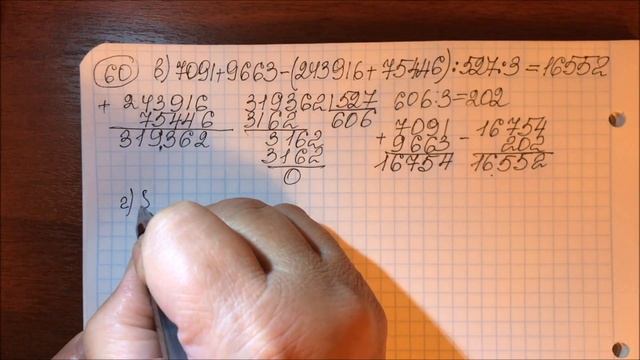 60 в) 7091+9663-(243916+75446):527:3=16552
+ 243916 319362 527 606:3=202
75446 3162 606 + 7091 - 16754
319362 3162 9663 202
3162 16754 16552
0
г) 5